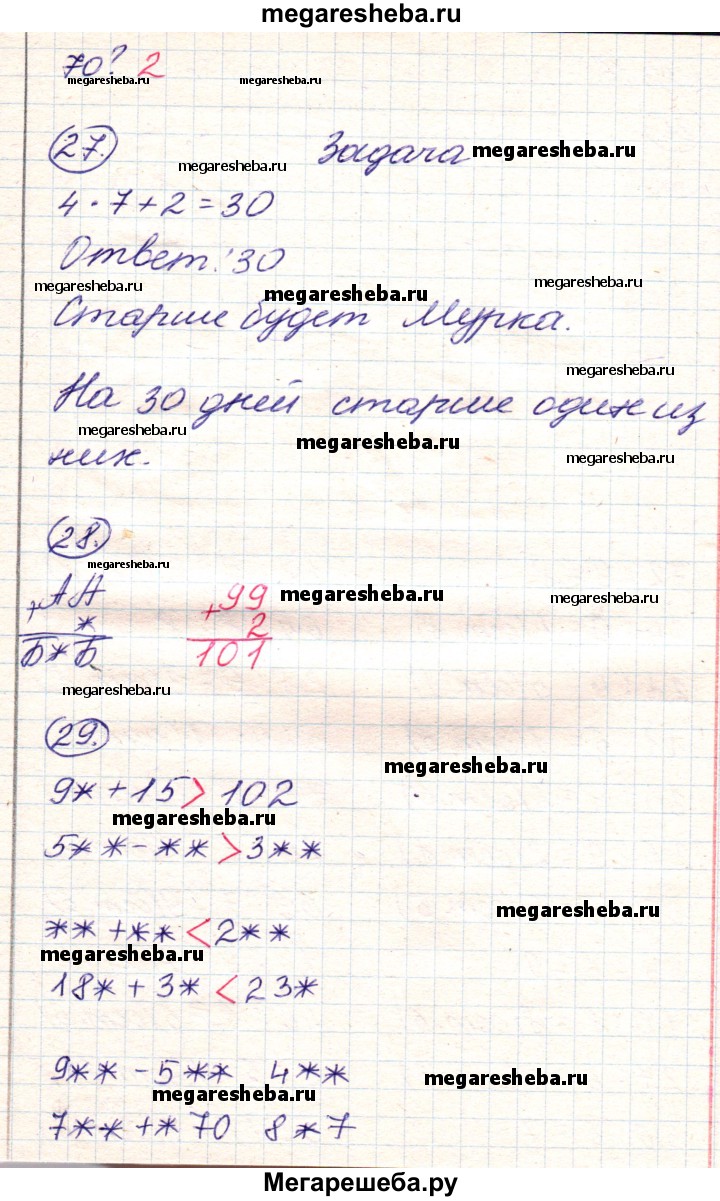 megaresheba.ru
70? 2
megaresheba.ru megaresheba.ru
27. Задача megaresheba.ru
megaresheba.ru
4 · 7 + 2 = 30
Ответ: 30
megaresheba.ru megaresheba.ru megaresheba.ru
Старше будет Мурка.
megaresheba.ru
На 30 дней старше один из
megaresheba.ru megaresheba.ru megaresheba.ru
них.
28.
megaresheba.ru
АА 99 megaresheba.ru megaresheba.ru
+ * + 2
Б*Б 101
megaresheba.ru
29.
megaresheba.ru
9* + 15 > 102
megaresheba.ru
5** - ** > 3**
megaresheba.ru
** + ** < 2**
megaresheba.ru
18* + 3* < 23*
9** - 5** 4** megaresheba.ru
megaresheba.ru
7** + *70 8*7
Мегарешеба.ру